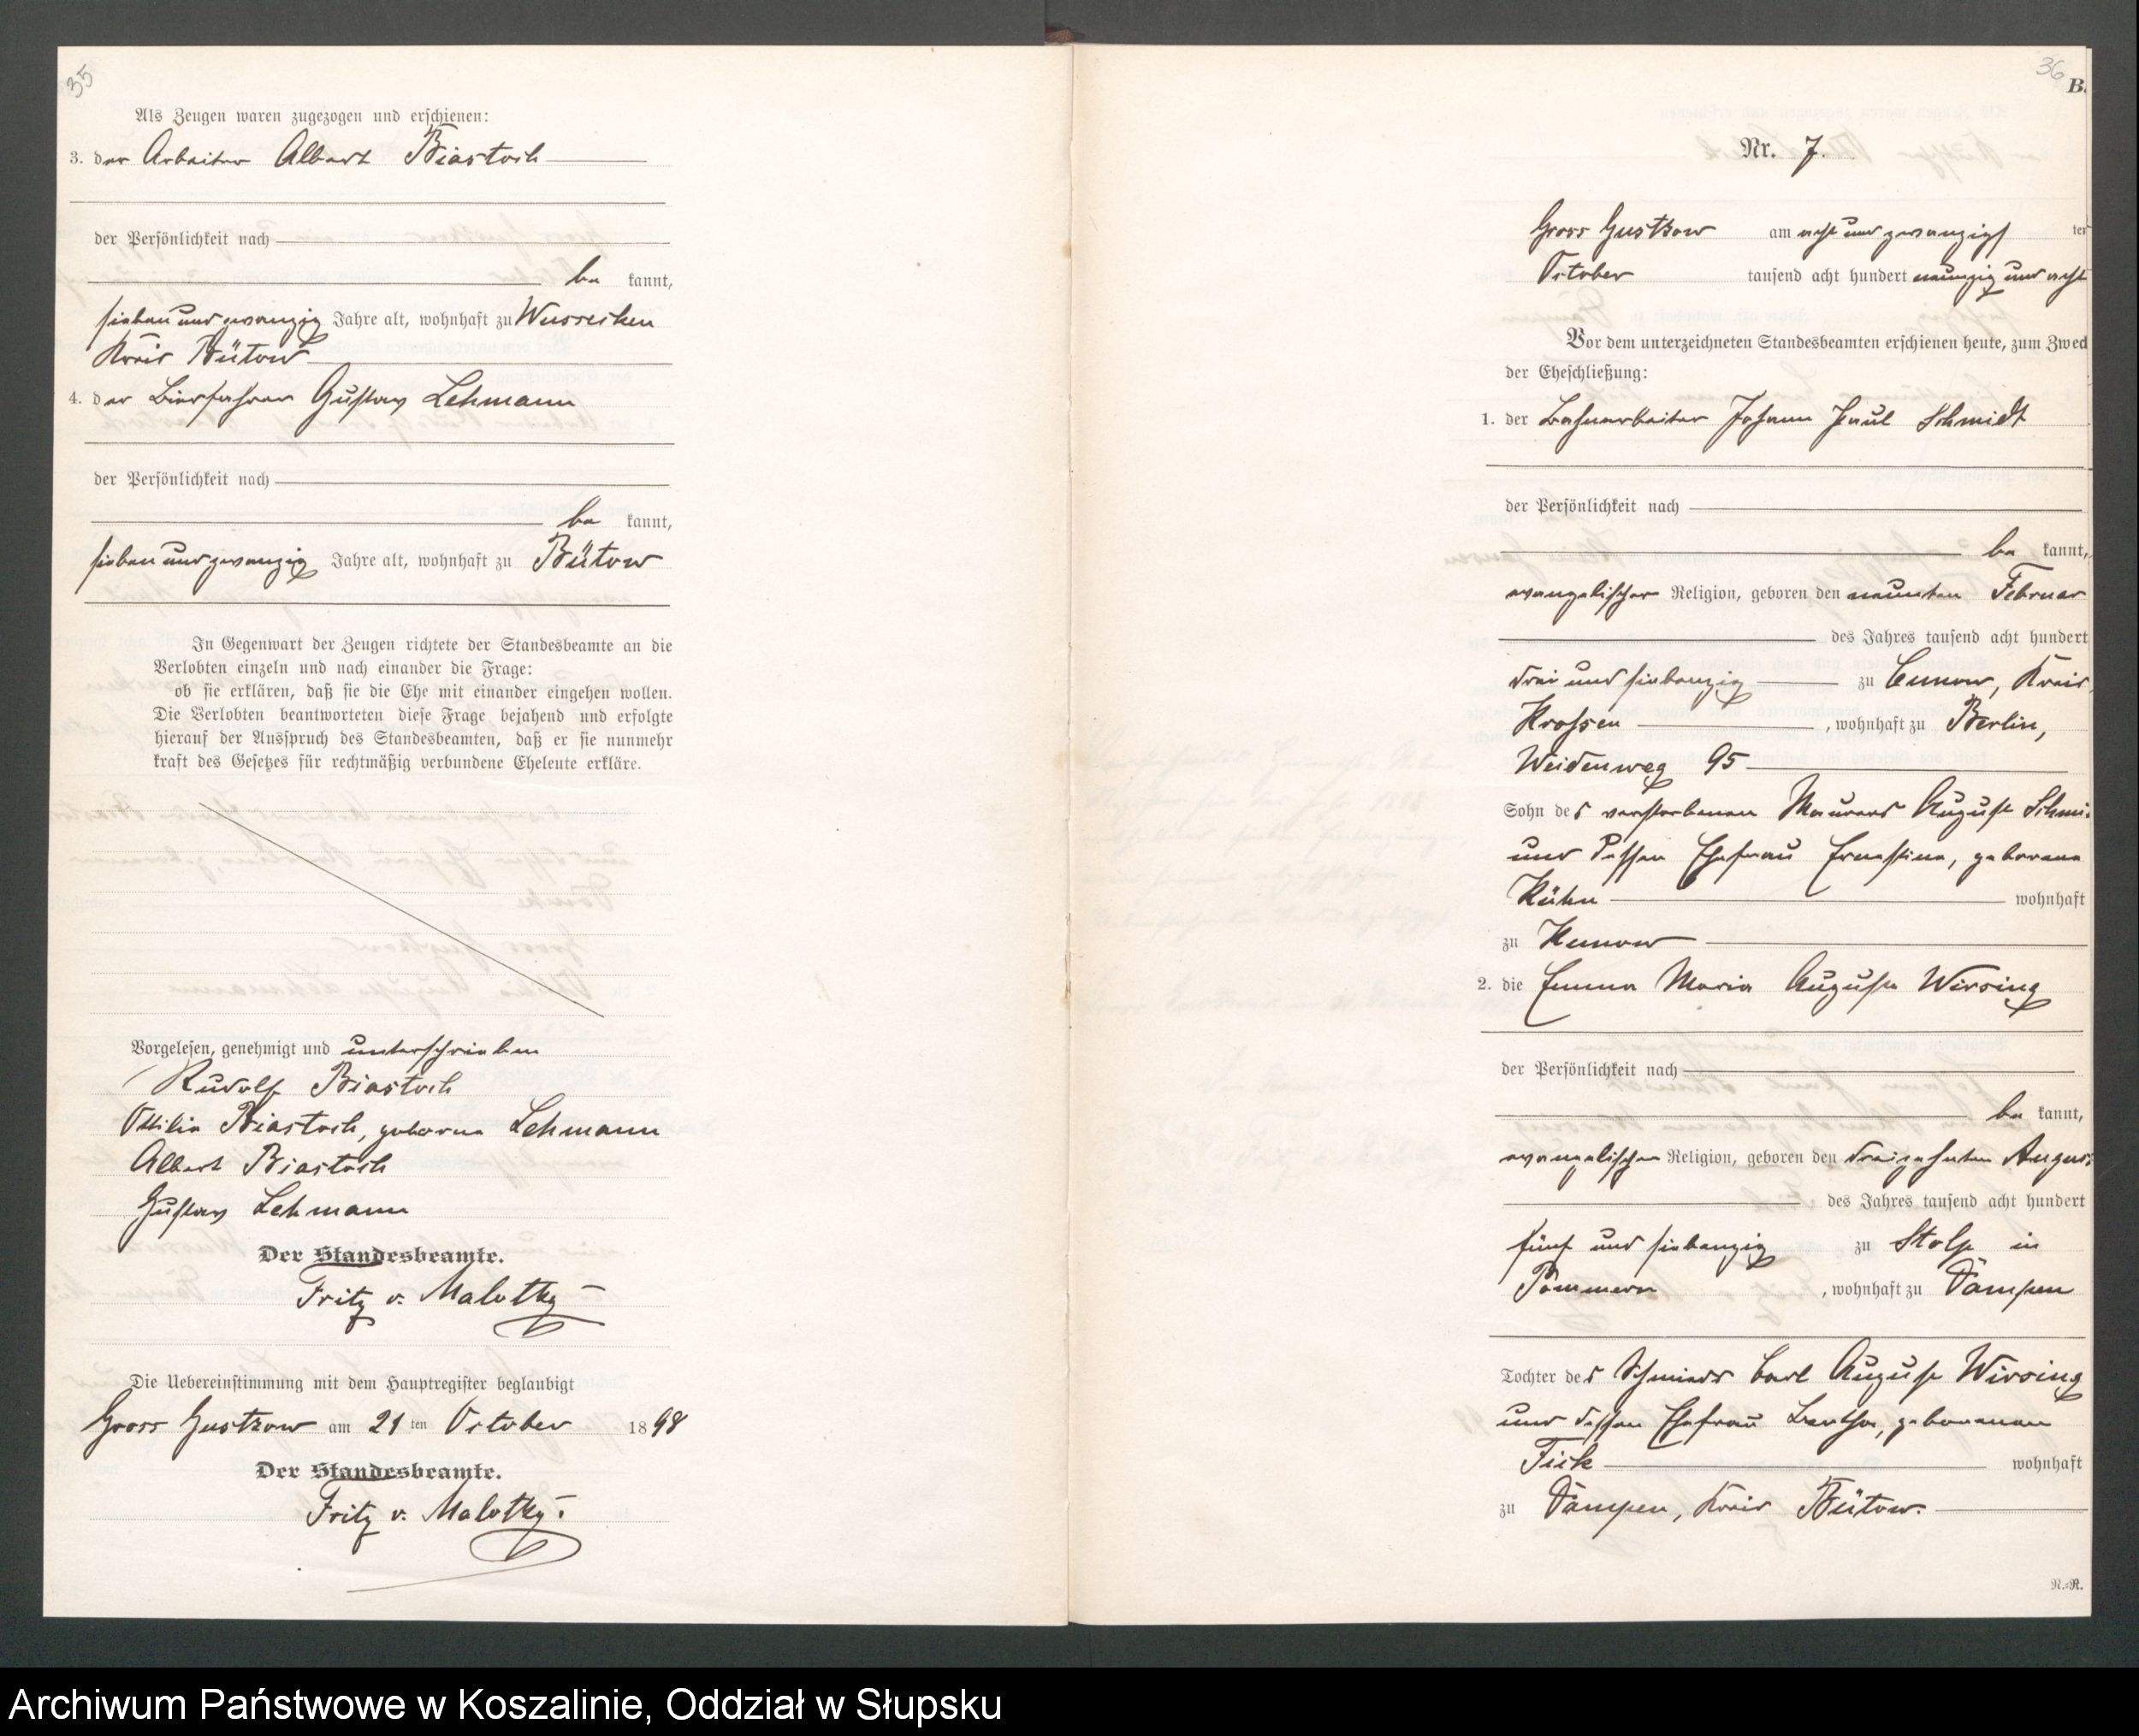 35
Als Zeugen waren zugezogen und erschienen:
3. der Arbeiter Albert Biastoch
der Persönlichkeit nach
be kannt,
sieben und zwanzig Jahre alt, wohnhaft zu Wussecken
Kreis Bütow
4. der Bierfahrer Gustav Lehmann
der Persönlichkeit nach
be kannt,
sieben und zwanzig Jahre alt, wohnhaft zu Bütow
In Gegenwart der Zeugen richtete der Standesbeamte an die
Verlobten einzeln und nach einander die Frage:
ob sie erklären, daß sie die Ehe mit einander eingehen wollen.
Die Verlobten beantworteten diese Frage bejahend und erfolgte
hierauf der Ausspruch des Standesbeamten, daß er sie nunmehr
kraft des Gesetzes für rechtmäßig verbundene Eheleute erkläre.
Vorgelesen, genehmigt und unterschrieben
Rudolf Biastoch
Ottilie Biastoch, geborene Lehmann
Albert Biastoch
Gustav Lehmann
Der Standesbeamte.
Fritz v. Malotky
Die Uebereinstimmung mit dem Hauptregister beglaubigt
Gross Gustkow am 21 ten October 1898
Der Standesbeamte.
Fritz v. Malotky.
36
B.
Nr. 7.
Gross Gustkow am acht und zwanzigs ten
October tausend acht hundert neunzig und acht
Vor dem unterzeichneten Standesbeamten erschienen heute, zum Zwec
der Eheschließung:
1. der Bahnarbeiter Johann Paul Schmidt
der Persönlichkeit nach
be kannt,
evangelischer Religion, geboren den neunten Februar
des Jahres tausend acht hundert
drei und siebenzig zu Cunow, Kreis
Krossen, wohnhaft zu Berlin,
Weidenweg 95
Sohn des verstorbenen Maurers August Schmi
und dessen Ehefrau Ernestine, geborene
Kühn wohnhaft
zu Kunow
2. die Emma Maria Auguste Wirsing
der Persönlichkeit nach
be kannt,
evangelischer Religion, geboren den dreizehnten Augus
des Jahres tausend acht hundert
fünf und siebenzig zu Stolp in
Pommern, wohnhaft zu Dampen
Tochter des Schmieds Carl August Wirsing
und dessen Ehefrau Bertha, geborenen
Fick wohnhaft
zu Dampen, Kreis Bütow.
N.=R.
Archiwum Państwowe w Koszalinie, Oddział w Słupsku